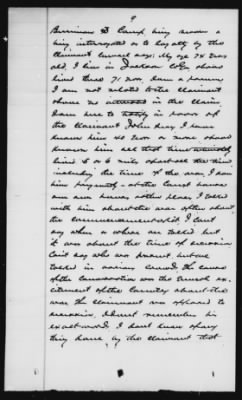 9
Berriman D. Camp being sworn &
being interrogated as to loyalty by the
Claimant Counsel says: My age 74 years
old, I live in Jackson Co Ga, I have
lived there 71 years, I am a farmer
I am not related to the Claimant
I have no interest in the Claim.
I am here to testify in favor of
the Claimant John Ivey. I have
known him 40 years or more, I have
known him all that time
lived 5 or 6 miles apart all the time,
including the time of the war, I saw
him frequently - at the Court house
and our homes & other places. I talked
with him about the war often about
the commencement of it. I can't
say when or where we talked but
it was about the time of secession
Can't say who was present but we
talked in various crowds. The cause
of the Conversation was the General ex-
citement of the Country about the
war. The Claimant was opposed to
secession. I don't remember his
exact words. I don't know of any
thing done by the Claimant that